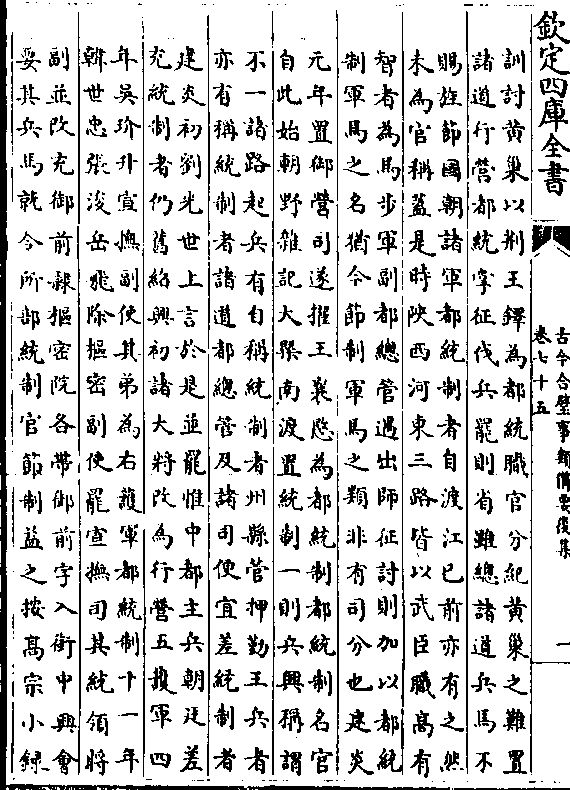 欽定四庫全書
古今合璧事類備要後集
卷七十五
一
訓討黄巢以荆王鐸為都統職官分紀黄巢之難置
諸道行營都統字征伐兵罷則省雖總諸道兵馬不
賜旌節國朝諸軍都統制者自渡江已前亦有之然
未為官稱蓋是時陜西河東三路皆以武臣職髙有
智者為馬步軍副都總管遇出師征討則加以都統
制軍馬之名猶今節制軍馬之類非有司分也建炎
元年置御營司遂擢王襄愍為都統制都統制名官
自此始朝野雜記大槩南渡置統制一則兵興稱謂
不一諸路起兵有自稱統制者州縣管押勤王兵者
亦有稱統制者諸道都總管及諸司使宜差統制者
建炎初劉光世上言於是並罷惟中都主兵朝廷差
充統制者仍舊紹興初諸大將改為行營五䕶軍四
年吳玠升宣撫副使其弟為右䕶軍都統制十一年
韓世忠張浚岳飛除樞密副使罷宣撫司其統領將
副並改充御前隷樞密院各帶御前字入銜中興會
要其兵馬就今所部統制官節制益之按髙宗小録